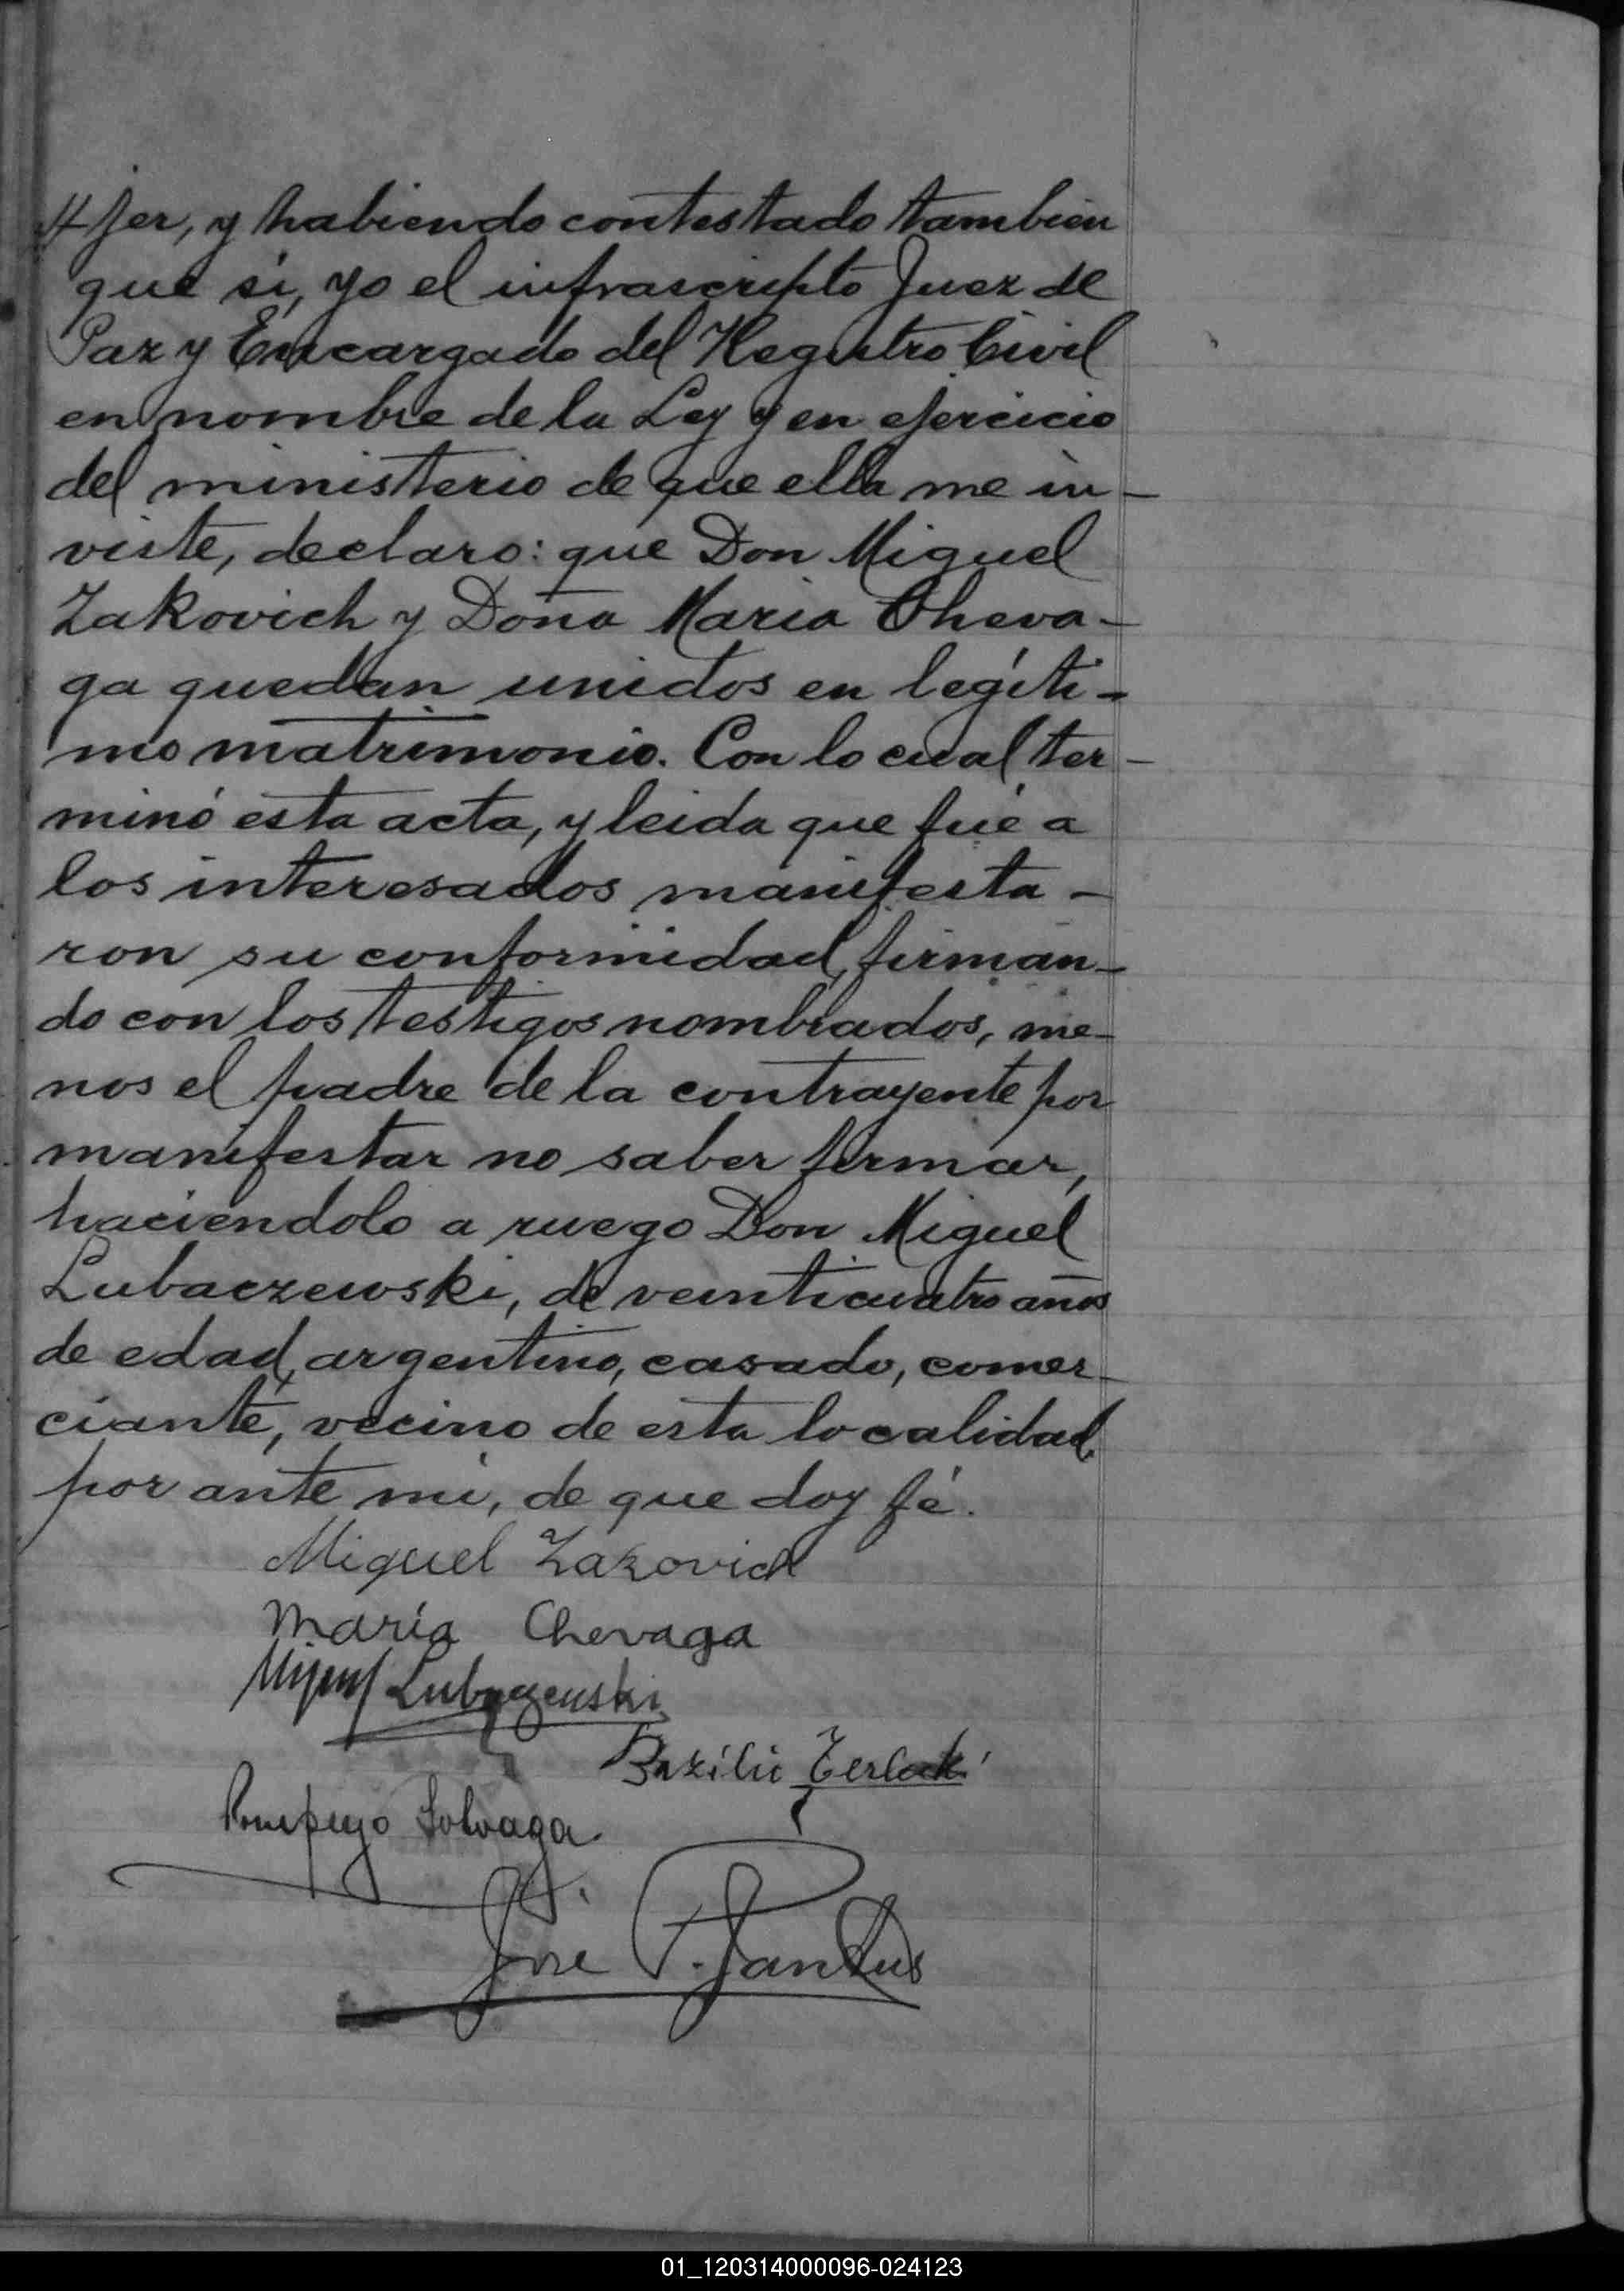 //jer, y habiendo contestado tambien
que si, yo el infrascripto Juez de
Paz y Encargado del Registro Civil
en nombre de la Ley y en ejercicio
del ministerio de que ella me in-
viste, declaro: que Don Miguel
Zakovich y Doña Maria Cheva-
ga quedan unidos en legíti-
mo matrimonio. Con lo cual ter-
minó esta acta, y leida que fué a
los interesados manifesta-
ron su conformidad, firman-
do con los testigos nombrados, me-
nos el padre de la contrayente por
manifestar no saber firmar,
haciendolo a ruego Don Miguel
Lubaczewski, de veinticuatro años
de edad, argentino, casado, comer-
ciante, vecino de esta localidad,
por ante mi, de que doy fé.
Miguel Zakovich
María Chevaga
Miguel Lubaczewski
Bazilio
Pompeyo
Jose P.
01_120314000096-024123